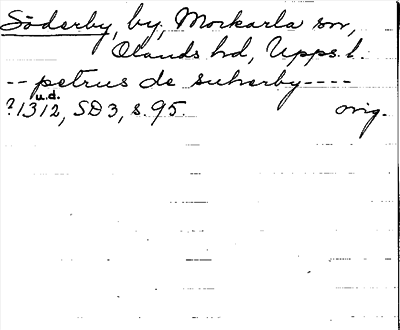 Söderby, by, Morkarla sn,
Olands hd, Upps. l.
-- petrus de suherby ----
u.d.
?1312, SD 3, s. 95. orig.